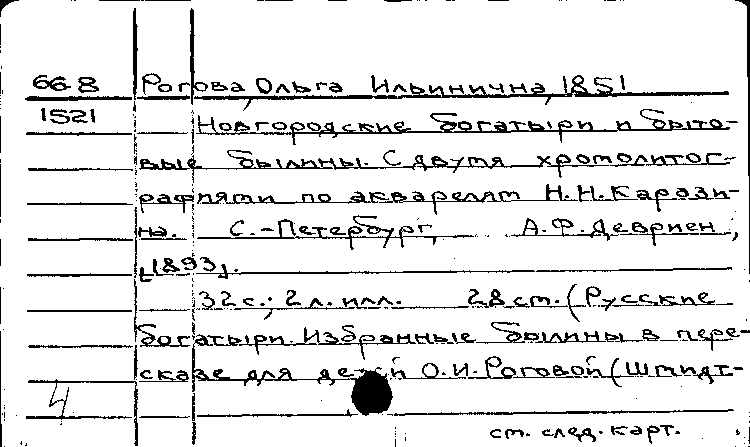 66-8 Рогова, Ольга Ильинична, 1851
1521 Новгородские богатыри и быто-
вые былины. С двумя хромолитог-
рафиями по акварелям Н.Н.Карази-
на. С.-Петербург, А.Ф.Девриен,
[1893].
32 с.; 2 л. илл. 28 см. (Русские
богатыри. Избранные былины в пере-
сказе для детей О.И.Роговой (Шмидт-
4
см. след. карт.